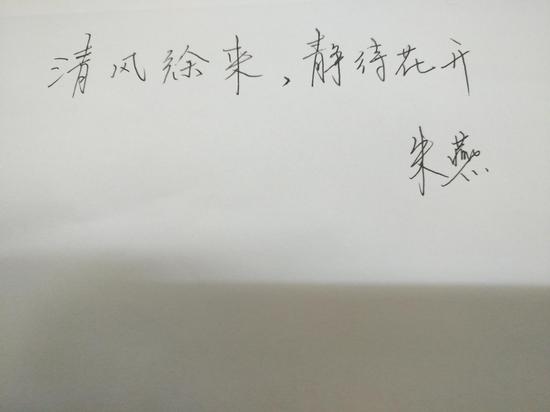 清风徐来，静待花开
朱燕